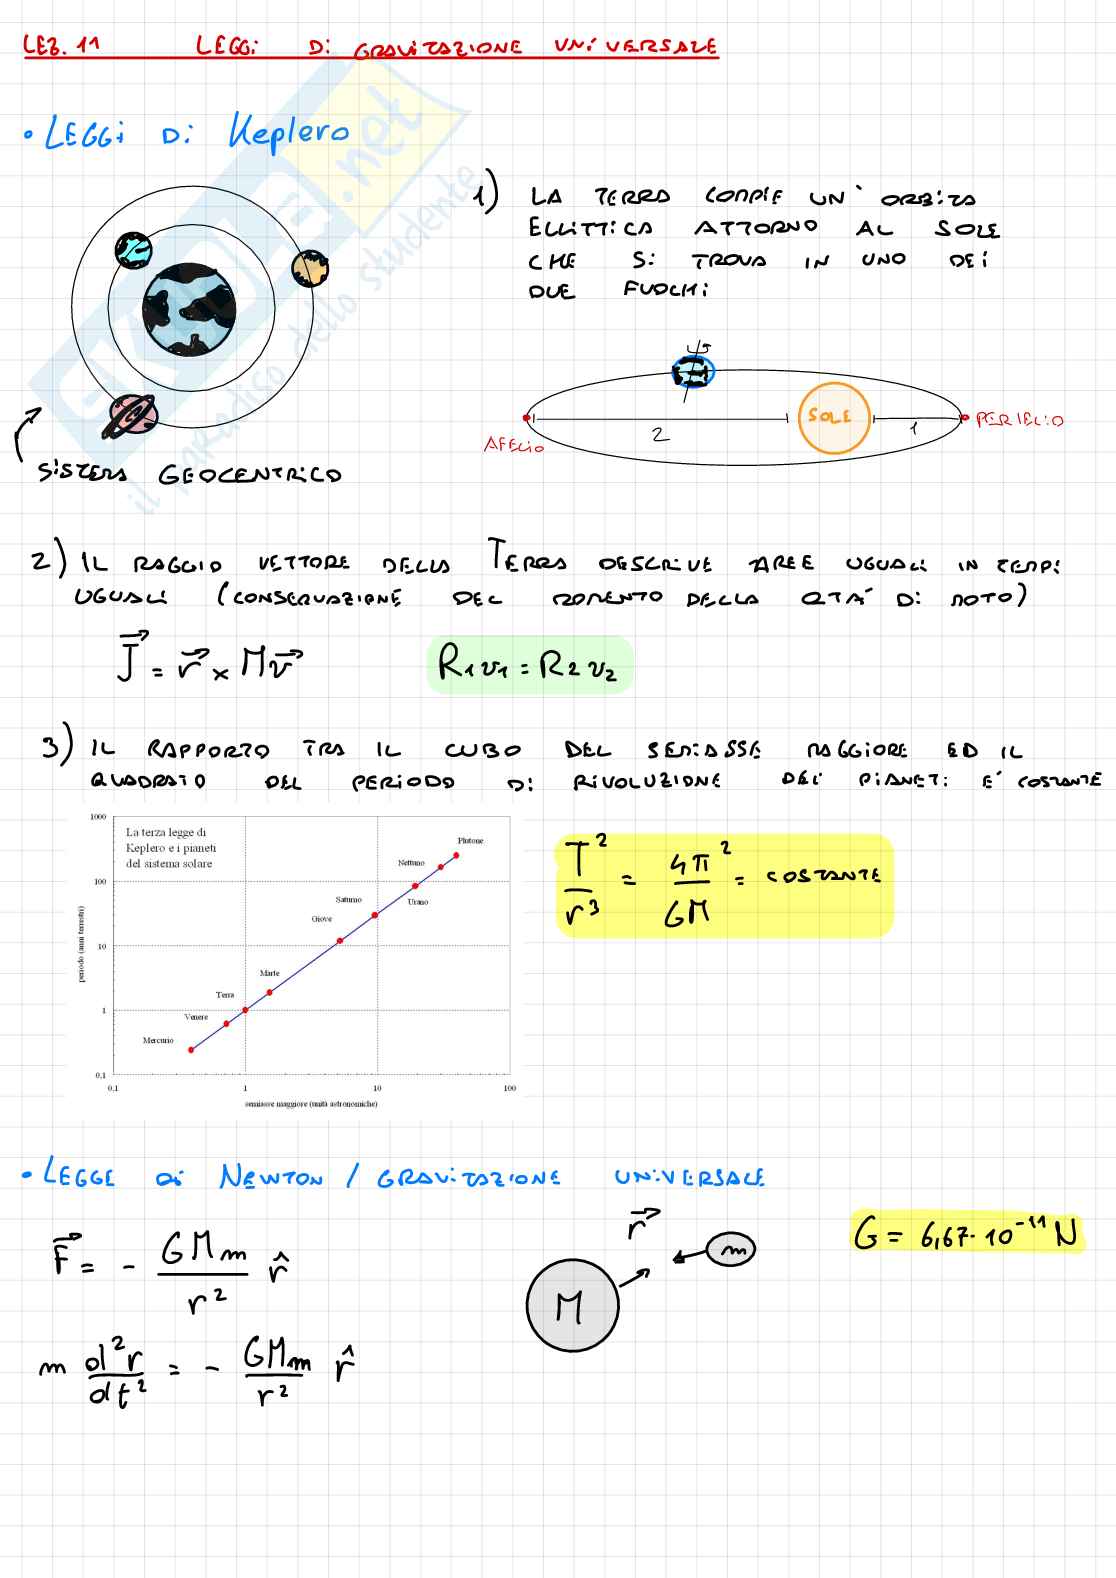 LEZ. 11 LEGGI DI GRAVITAZIONE UNIVERSALE
• LEGGI DI Keplero
1) LA TERRA COMPIE UN' ORBITA
ELLITTICA ATTORNO AL SOLE
CHE SI TROVA IN UNO DEI
DUE FUOCHI
SISTEMA GEOCENTRICO
AFELIO
2
SOLE
1
PERIELIO
2) IL RAGGIO VETTORE DELLA TERRA DESCRIVE AREE UGUALI IN TEMPI
UGUALI (CONSERVAZIONE DEL MOMENTO DELLA QTA' DI MOTO)
J⃗ = r⃗ × Mv⃗
R₁v₁ = R₂v₂
3) IL RAPPORTO TRA IL CUBO DEL SEMIASSE MAGGIORE ED IL
QUADRATO DEL PERIODO DI RIVOLUZIONE DEI PIANETI E' COSTANTE
La terza legge di
Keplero e i pianeti
del sistema solare
1000
100
10
1
0,1
periodo (anni terrestri)
Plutone
Nettuno
Urano
Saturno
Giove
Marte
Terra
Venere
Mercurio
0,1 1 10 100
semiasse maggiore (unità astronomiche)
T²/r³ = 4π²/GM = COSTANTE
• LEGGE DI NEWTON / GRAVITAZIONE UNIVERSALE
F⃗ = - GMm/r² r̂
r⃗
M
m
G = 6,67·10⁻¹¹ N
m d²r/dt² = - GMm/r² r̂
SKUOLA.net
il paradiso dello studente